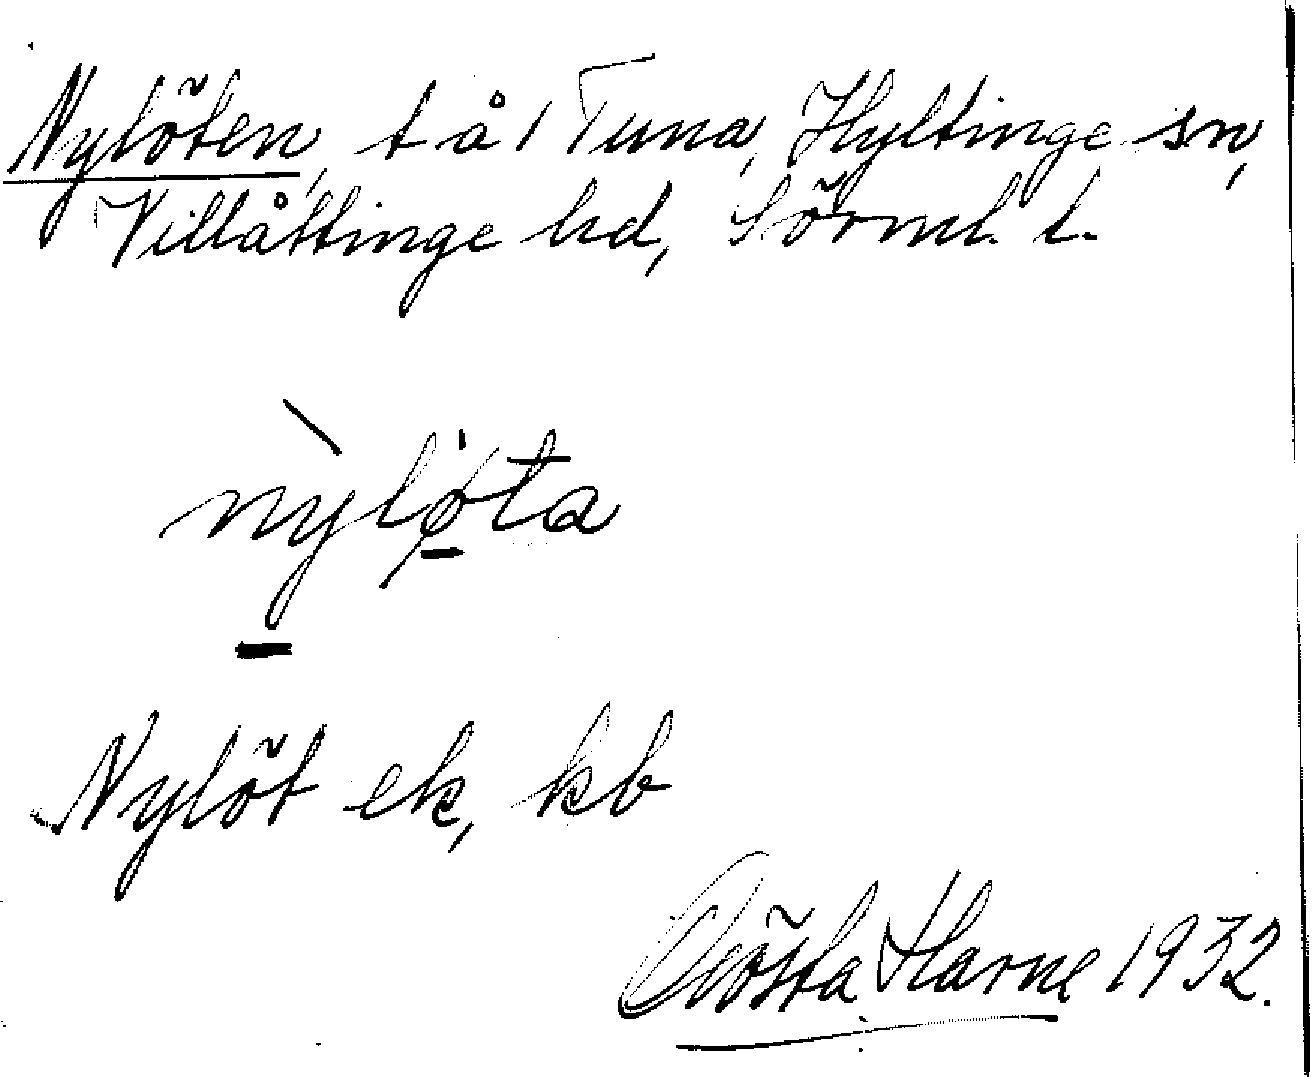 Nylöten, t å 1 Tuna, Hyltinge sn,
Villåttinge hd, Sörml. l.
nỳlø̱ta
Nylöt ek, kb
Gösta Harne 1932.